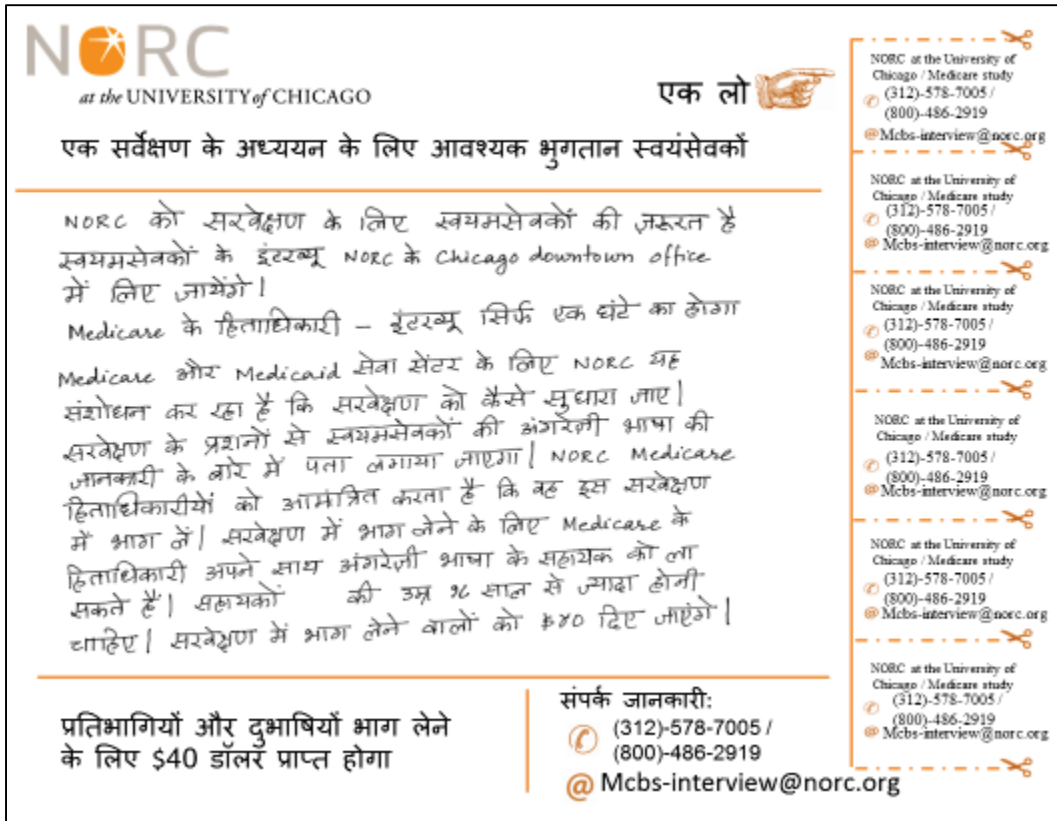 NORC
at the UNIVERSITY of CHICAGO
एक लो
एक सर्वेक्षण के अध्ययन के लिए आवश्यक भुगतान स्वयंसेवकों
NORC को सरवेक्षण के लिए स्वयमसेवकों की ज़रूरत है
स्वयमसेवकों के इंटरव्यू NORC के Chicago downtown office
में लिए जायेंगे।
Medicare के हिताधिकारी – इंटरव्यू सिर्फ एक घंटे का होगा
Medicare और Medicaid सेवा सेंटर के लिए NORC यह
संशोधन कर रहा है कि सरवेक्षण को कैसे सुधारा जाए।
सरवेक्षण के प्रशनों से स्वयमसेवकों की अंगरेज़ी भाषा की
जानकारी के बारे में पता लगाया जाएगा। NORC Medicare
हिताधिकारीयों को आमंत्रित करता है कि वह इस सरवेक्षण
में भाग लें। सरवेक्षण में भाग लेने के लिए Medicare के
हिताधिकारी अपने साथ अंगरेज़ी भाषा के सहायक को ला
सकते हैं। सहायकों की उम्र १८ साल से ज्यादा होनी
चाहिए। सरवेक्षण में भाग लेने वालों को $४० दिए जाएंगे।
प्रतिभागियों और दुभाषियों भाग लेने
के लिए $40 डॉलर प्राप्त होगा
संपर्क जानकारी:
(312)-578-7005 /
(800)-486-2919
@ Mcbs-interview@norc.org
NORC at the University of
Chicago / Medicare study
(312)-578-7005 /
(800)-486-2919
@ Mcbs-interview@norc.org
NORC at the University of
Chicago / Medicare study
(312)-578-7005 /
(800)-486-2919
@ Mcbs-interview@norc.org
NORC at the University of
Chicago / Medicare study
(312)-578-7005 /
(800)-486-2919
@ Mcbs-interview@norc.org
NORC at the University of
Chicago / Medicare study
(312)-578-7005 /
(800)-486-2919
@ Mcbs-interview@norc.org
NORC at the University of
Chicago / Medicare study
(312)-578-7005 /
(800)-486-2919
@ Mcbs-interview@norc.org
NORC at the University of
Chicago / Medicare study
(312)-578-7005 /
(800)-486-2919
@ Mcbs-interview@norc.org